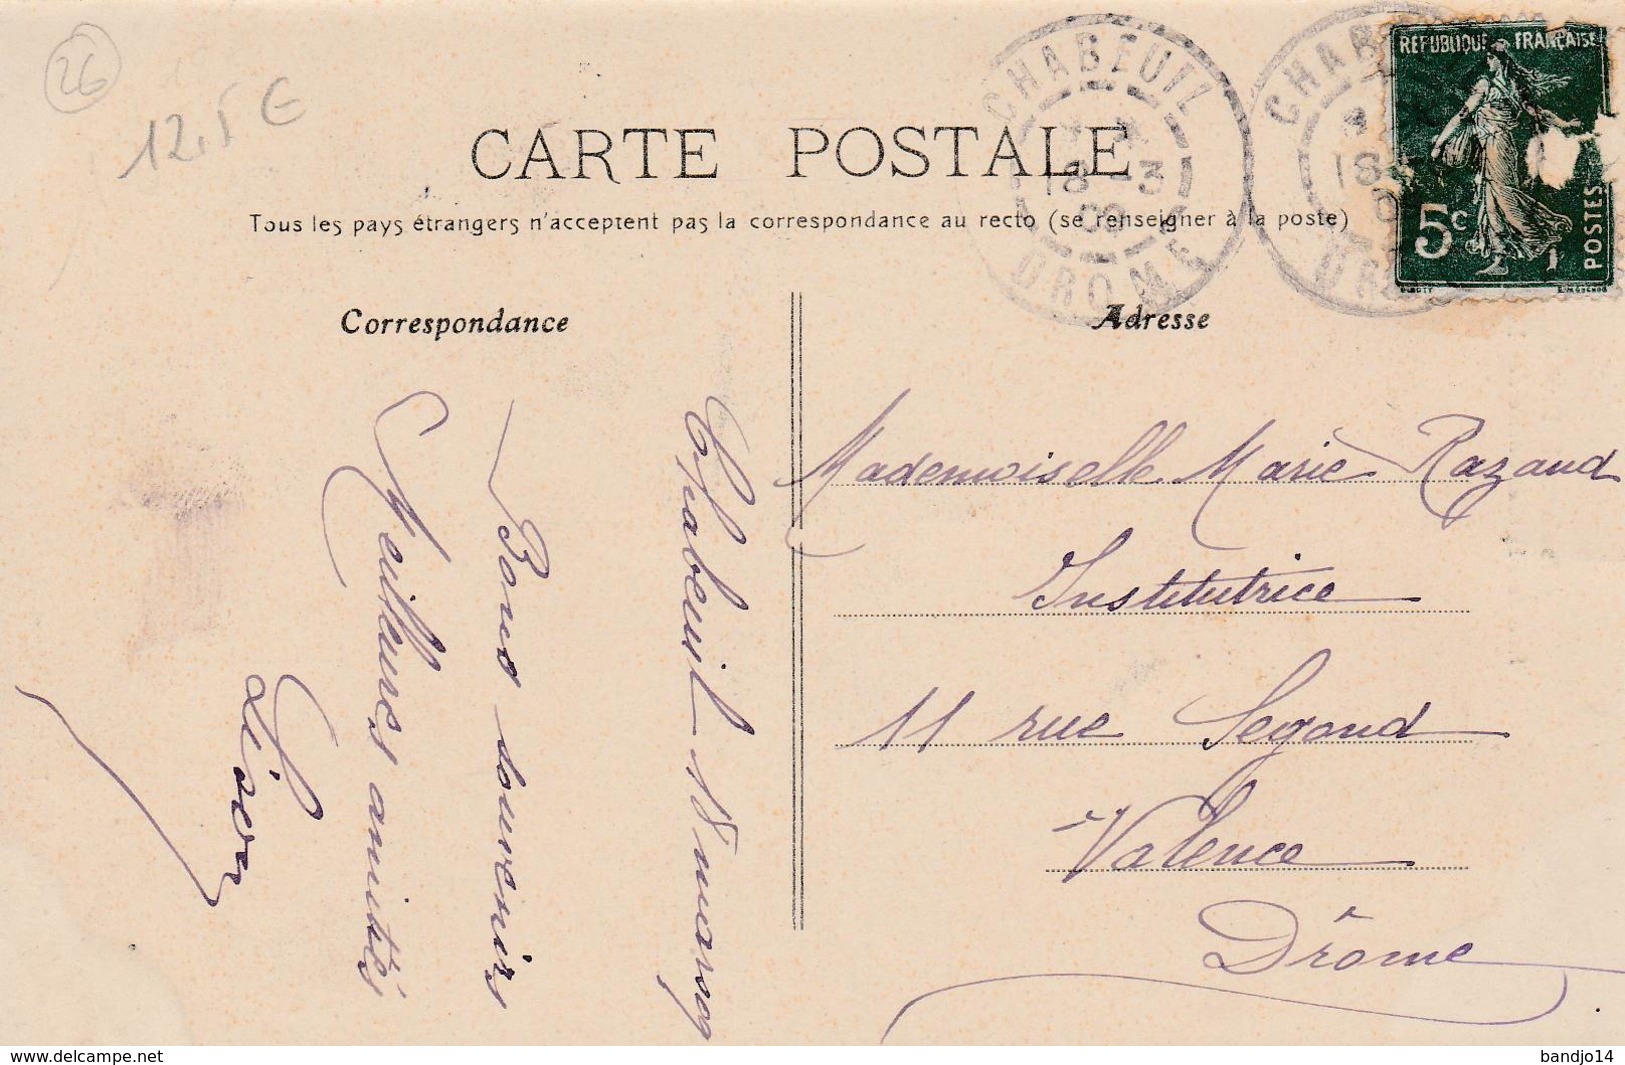 26
12,5 €
CARTE POSTALE
Tous les pays étrangers n'acceptent pas la correspondance au recto (se renseigner à la poste)
CHABEUIL
18 -3
09
DROME
CHAB
18
REPUBLIQUE FRANÇAISE
5c
POSTES
Correspondance
Adresse
Chabeuil 18 mars 09
Bons souvenirs
Meilleures amitiés
Mademoiselle Marie Razaud
Institutrice
11 rue Segond
Valence
Drôme
www.delcampe.net
bandjo14